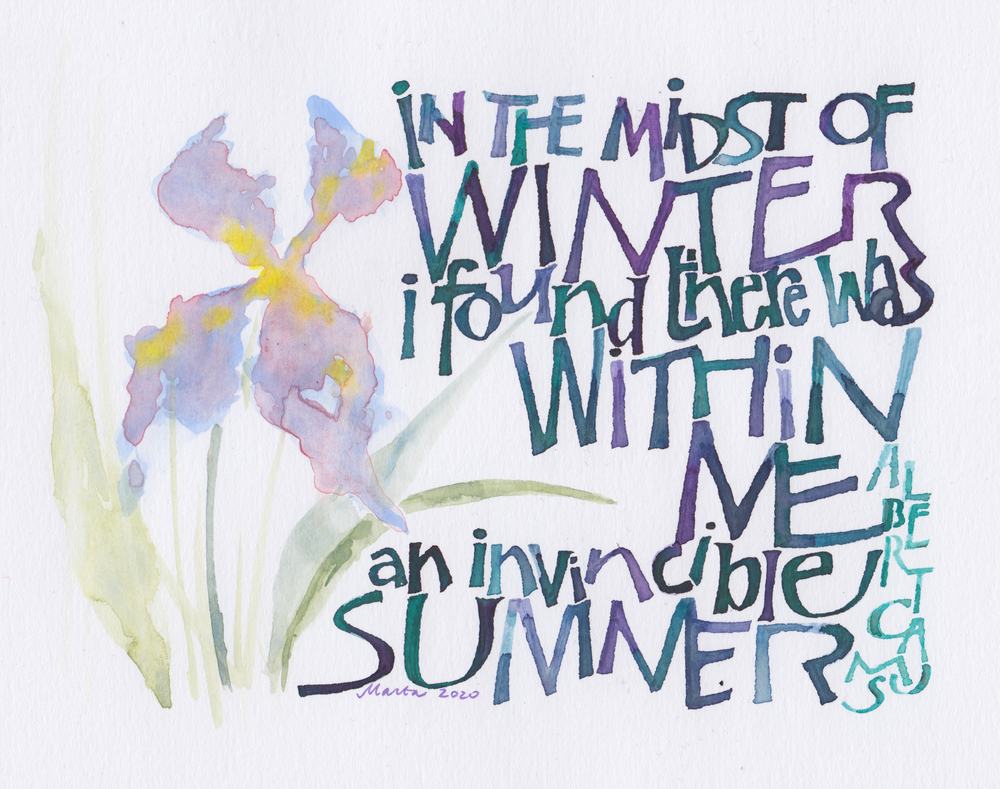 iN THE MiDST OF
WINTER
i found there was
WiTHiN
ME
an invincible
SUMMER
ALBERT CAMUS
Marta 2020